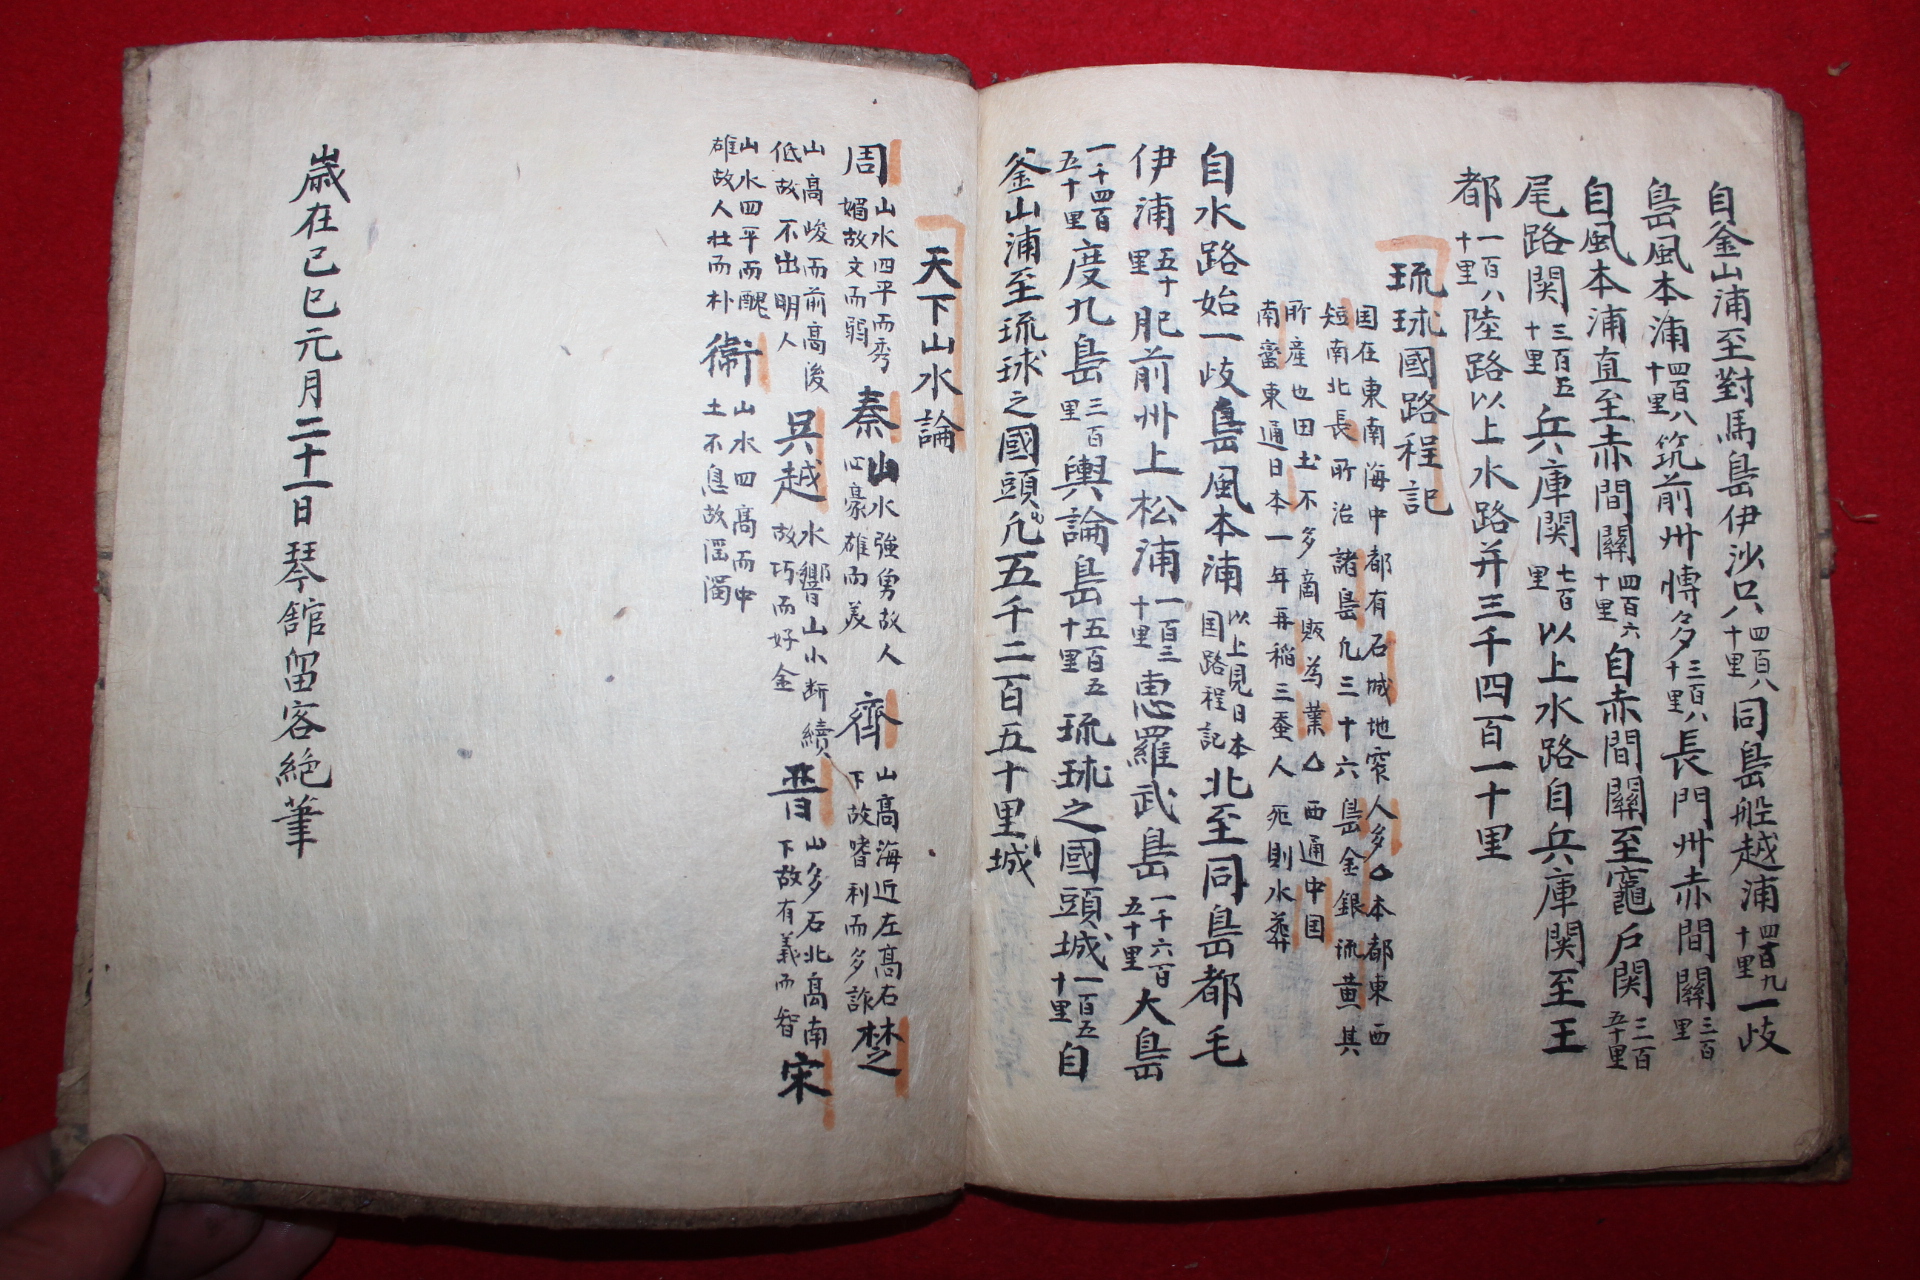 自釜山浦至對馬島伊沙只八四百八十里同島船越浦四百九十里一歧
島風本浦四百八十里筑前州愽多三百八十里長門州赤間關三百里
自風本浦直至赤間關四百六十里自赤間關至竈戶関三百五十里
尾路関三百五十里兵庫関七百里以上水路自兵庫関至王
都一百八十里陸路以上水路并三千四百一十里
琉球國路程記
国在東南海中都有石城地窄人多△本都東西
短南北長所治諸島凢三十六島金銀琉黄其
所産也田土不多商販為業△西通中国
南蛮東通日本一年再稲三蚕人死則水葬
自水路始一歧島風本浦以上見日本国路程記北至同島都毛
伊浦五十里肥前州上松浦一百三十里恵羅武島一千六百五十里大島
一千四百五十里度九島三百里輿論島五百五十里琉球之國頭城一百五十里自
釜山浦至琉球之國頭城凢五千二百五十里
天下山水論
周山水四平而秀媚故文而弱秦山水強勇故人心豪雄而美齊山高海近左高右下故嗜利而多詐楚
山高峻而前高後低故不出明人吳越水響山小断續故巧而好金晋山多石北高南下故有義而智宋
山水四平而醜雄故人壮而朴衛山水四高而中土不息故滛濁
歲在己巳元月二十一日琴舘留客絶筆